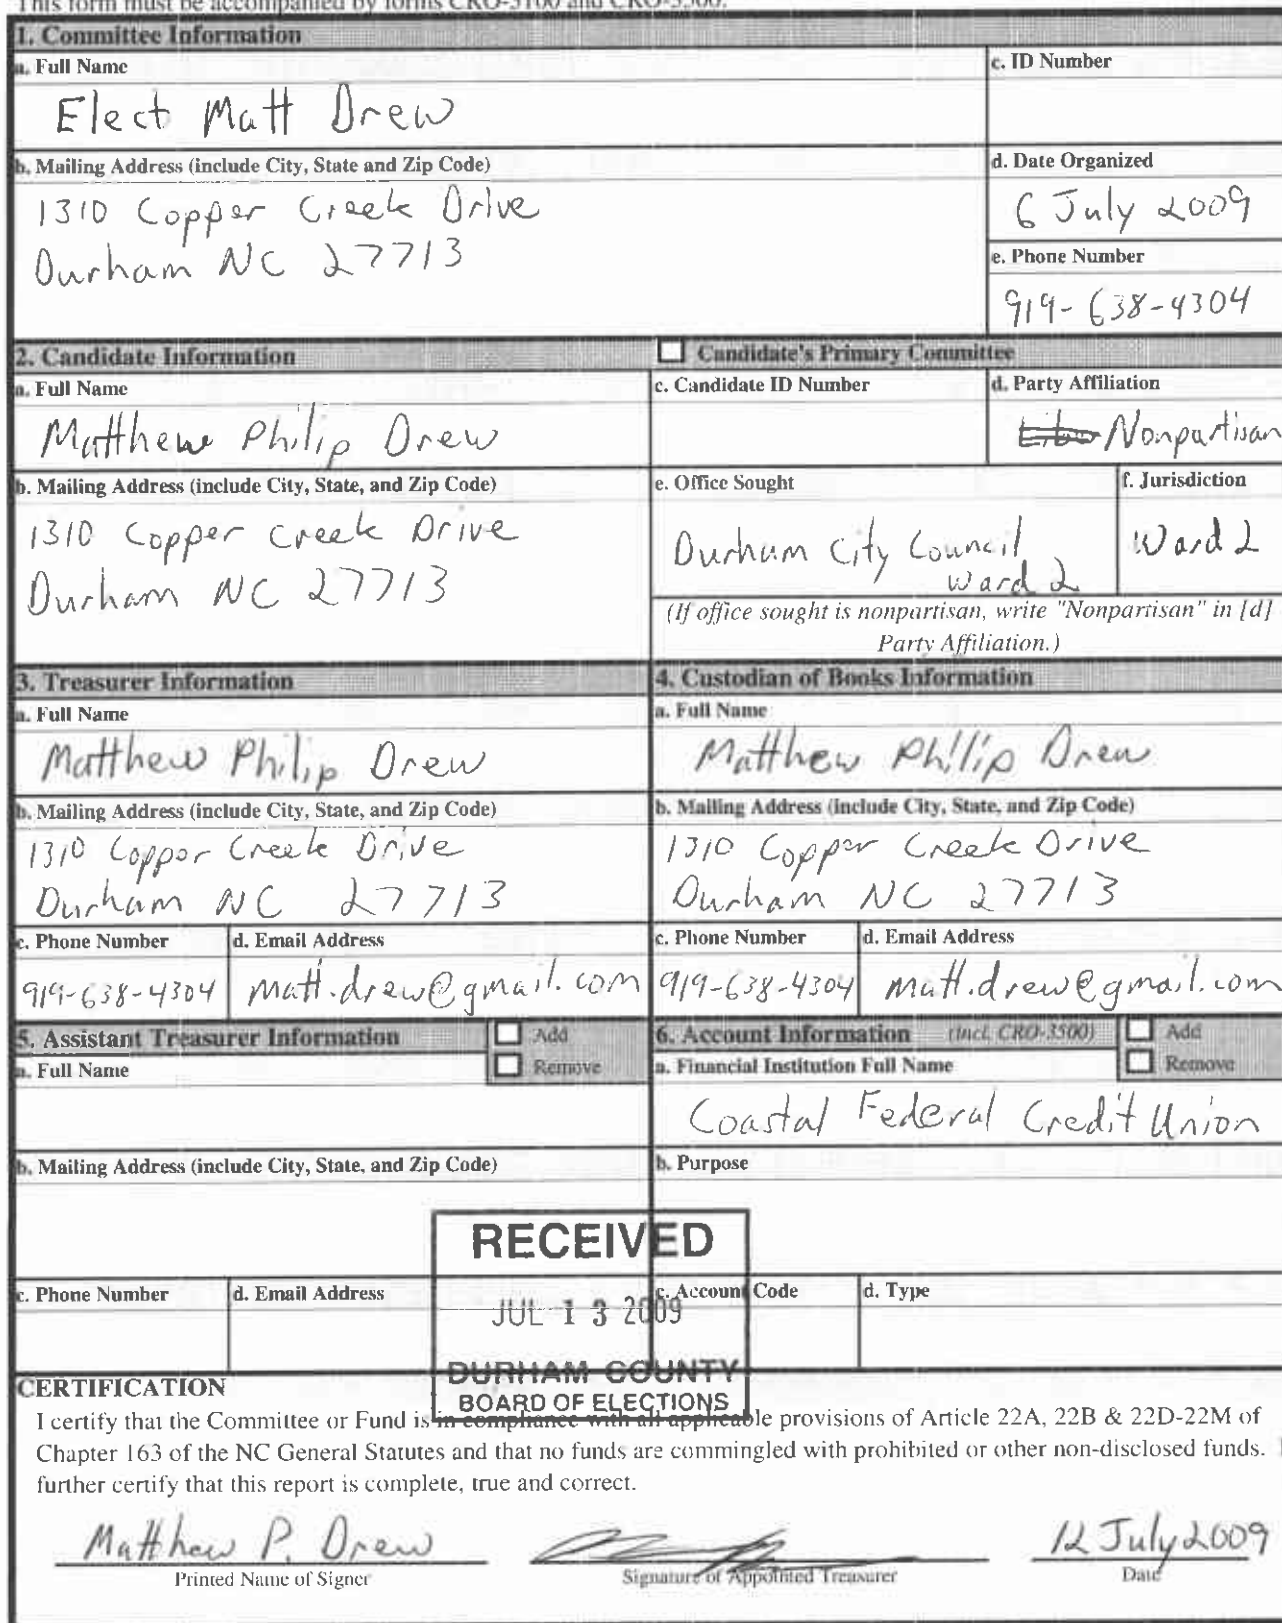 This form must be accompanied by forms CRO-3100 and CRO-3500.
1. Committee Information
a. Full Name
Elect Matt Drew
c. ID Number
b. Mailing Address (include City, State and Zip Code)
1310 Copper Creek Drive
Durham NC 27713
d. Date Organized
6 July 2009
e. Phone Number
919-638-4304
2. Candidate Information
Candidate's Primary Committee
a. Full Name
Matthew Philip Drew
c. Candidate ID Number
d. Party Affiliation
Nonpartisan
b. Mailing Address (include City, State, and Zip Code)
1310 Copper Creek Drive
Durham NC 27713
e. Office Sought
Durham City Council
Ward 2
f. Jurisdiction
Ward 2
(If office sought is nonpartisan, write "Nonpartisan" in [d]
Party Affiliation.)
3. Treasurer Information
a. Full Name
Matthew Philip Drew
b. Mailing Address (include City, State, and Zip Code)
1310 Copper Creek Drive
Durham NC 27713
c. Phone Number
919-638-4304
d. Email Address
matt.drew@gmail.com
4. Custodian of Books Information
a. Full Name
Matthew Philip Drew
b. Mailing Address (include City, State, and Zip Code)
1310 Copper Creek Drive
Durham NC 27713
c. Phone Number
919-638-4304
d. Email Address
matt.drew@gmail.com
5. Assistant Treasurer Information
Add
Remove
a. Full Name
b. Mailing Address (include City, State, and Zip Code)
c. Phone Number
d. Email Address
6. Account Information (incl. CRO-3500)
Add
Remove
a. Financial Institution Full Name
Coastal Federal Credit Union
b. Purpose
c. Account Code
d. Type
RECEIVED
JUL 13 2009
DURHAM COUNTY
BOARD OF ELECTIONS
CERTIFICATION
I certify that the Committee or Fund is in compliance with all applicable provisions of Article 22A, 22B & 22D-22M of
Chapter 163 of the NC General Statutes and that no funds are commingled with prohibited or other non-disclosed funds. I
further certify that this report is complete, true and correct.
Matthew P. Drew
Printed Name of Signer
Signature of Appointed Treasurer
12 July 2009
Date